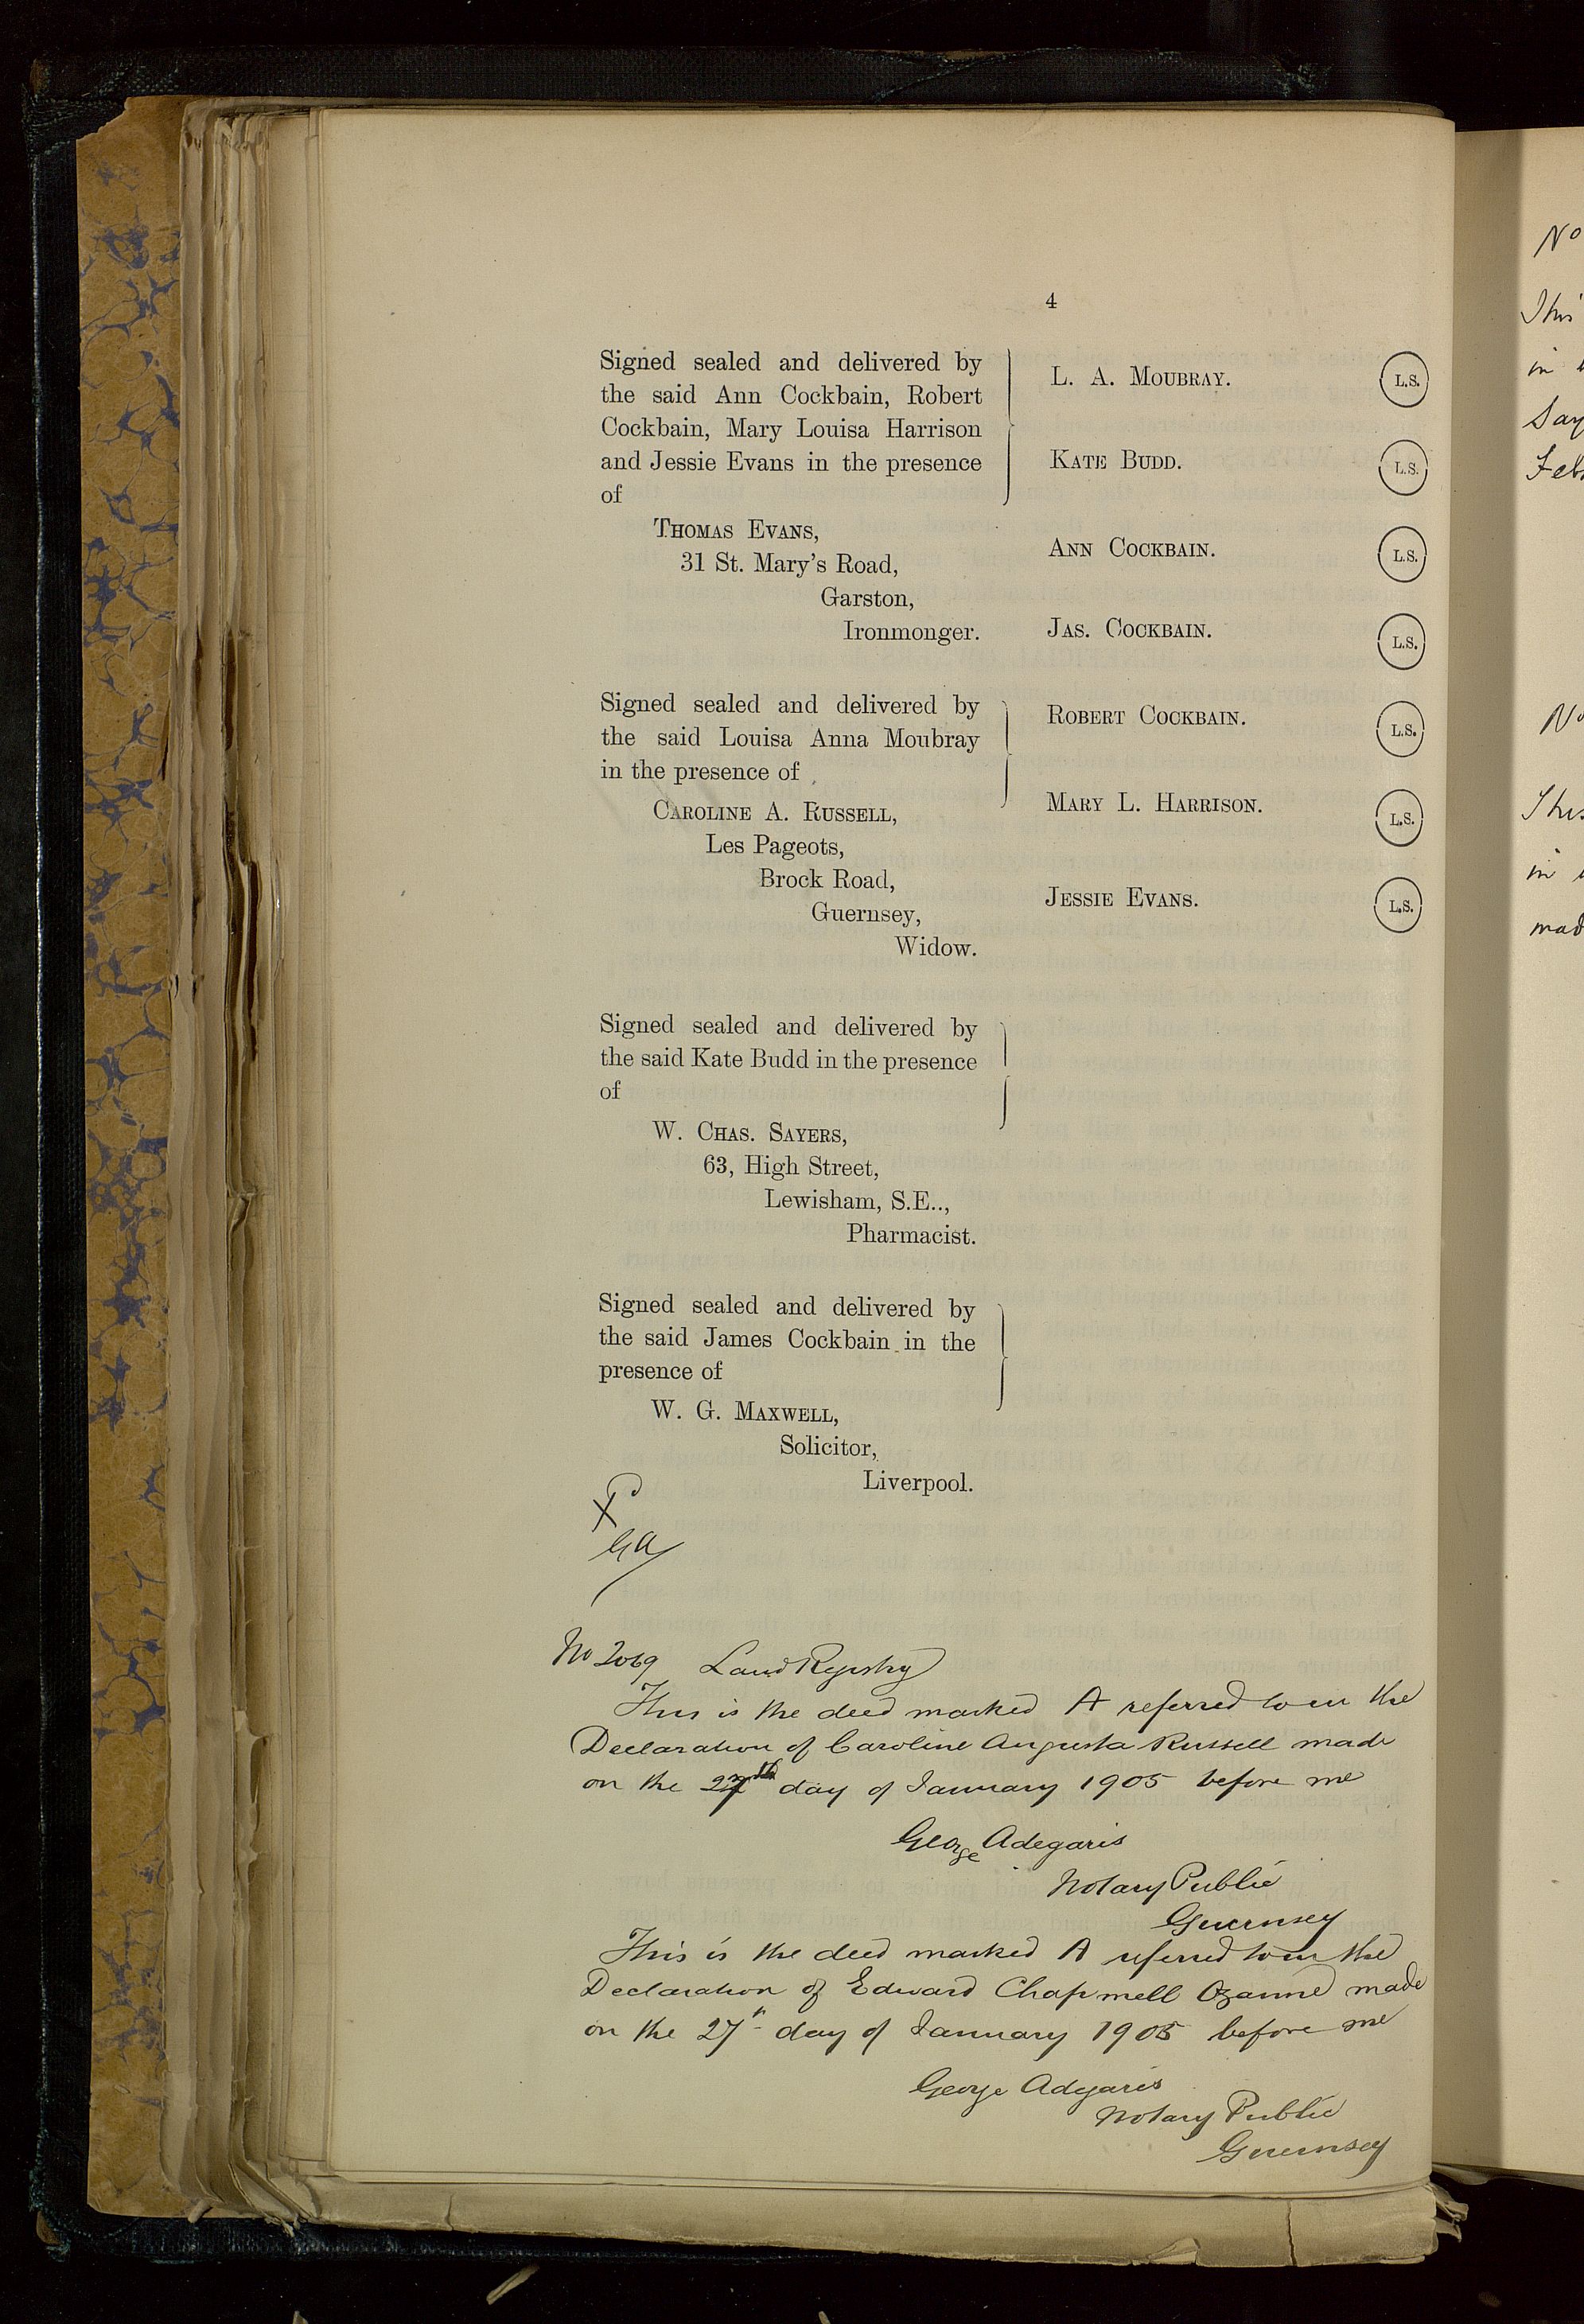 4
Signed sealed and delivered by
the said Ann Cockbain, Robert
Cockbain, Mary Louisa Harrison
and Jessie Evans in the presence
of
THOMAS EVANS,
31 St. Mary's Road,
Garston,
Ironmonger.
Signed sealed and delivered by
the said Louisa Anna Moubray
in the presence of
CAROLINE A. RUSSELL,
Les Pageots,
Brock Road,
Guernsey,
Widow.
Signed sealed and delivered by
the said Kate Budd in the presence
of
W. CHAS. SAYERS,
63, High Street,
Lewisham, S.E..,
Pharmacist.
Signed sealed and delivered by
the said James Cockbain in the
presence of
W. G. MAXWELL,
Solicitor,
Liverpool.
L. A. MOUBRAY. L.S.
KATE BUDD. L.S.
ANN COCKBAIN. L.S.
JAS. COCKBAIN. L.S.
ROBERT COCKBAIN. L.S.
MARY L. HARRISON. L.S.
JESSIE EVANS. L.S.
No 2069 Land Registry
This is the deed marked A referred to in the
Declaration of Caroline Augusta Russell made
on the 27th day of January 1905 before me
George Adegaris
Notary Public
Guernsey
This is the deed marked A referred to in the
Declaration of Edward Chapmell Ozanne made
on the 27th day of January 1905 before me
George Adegaris
Notary Public
Guernsey
No
This
in
No
This
in